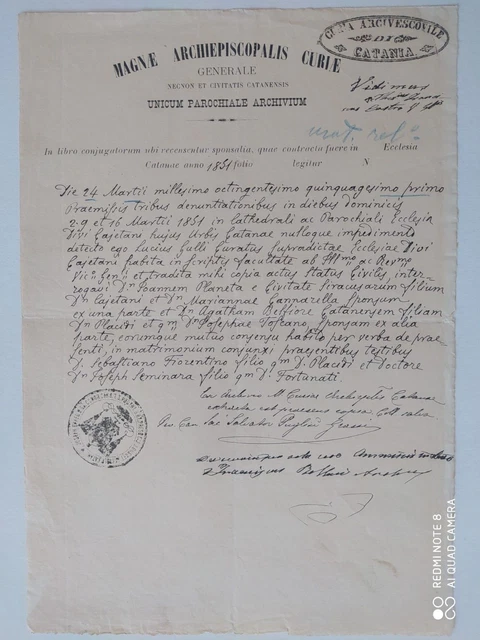 CURIA ARCIVESCOVILE
DI
CATANIA
MAGNÆ ARCHIEPISCOPALIS CURIÆ
GENERALE
NECNON ET CIVITATIS CATANENSIS
UNICUM PAROCHIALE ARCHIVIUM
Vidimus
In libro conjugatorum ubi recensentur sponsalia, quae contracta fuere in Ecclesia
Catanae anno 1851 folio legitur N
Die 24 Martii millesimo octingentesimo quinquagesimo primo
Praemissis tribus denuntiationibus in diebus dominicis
2. 9 et 16 Martii 1851 in Cathedrali ac Parochiali Ecclesia
Divi Cajetani hujus Urbis Catanae nulloque impedimento
detecto ego Lucius Lulli Curatus supradictae Ecclesiae Divi
Cajetani habita in scriptis facultate ab Ill.mo ac Rev.mo
Vic.o Gen.i et tradita mihi copia actus Status Civilis, inter-
rogavi D.n Joannem Planeta e Civitate Siracusarum filium
D.n Cajetani et D.n Mariannae Cannarella Sponsum
ex una parte et D.n Agatham Belfiore Catanensem filiam
D.n Placidi et q.m D.n Josephae Toscano, Sponsam ex alia
parte, eorumque mutuo consensu habito per verba de prae-
senti, in matrimonium conjunxi praesentibus testibus
D. Sebastiano Fiorentino filio q.m D. Placidi et Doctore
D.n Joseph Seminara filio q.m D. Fortunati.
Ex archivo M. Curiae Archiep.lis Catanae
extracta est praesens copia Coll. salva
Can. Salvator
REDMI NOTE 8
AI QUAD CAMERA